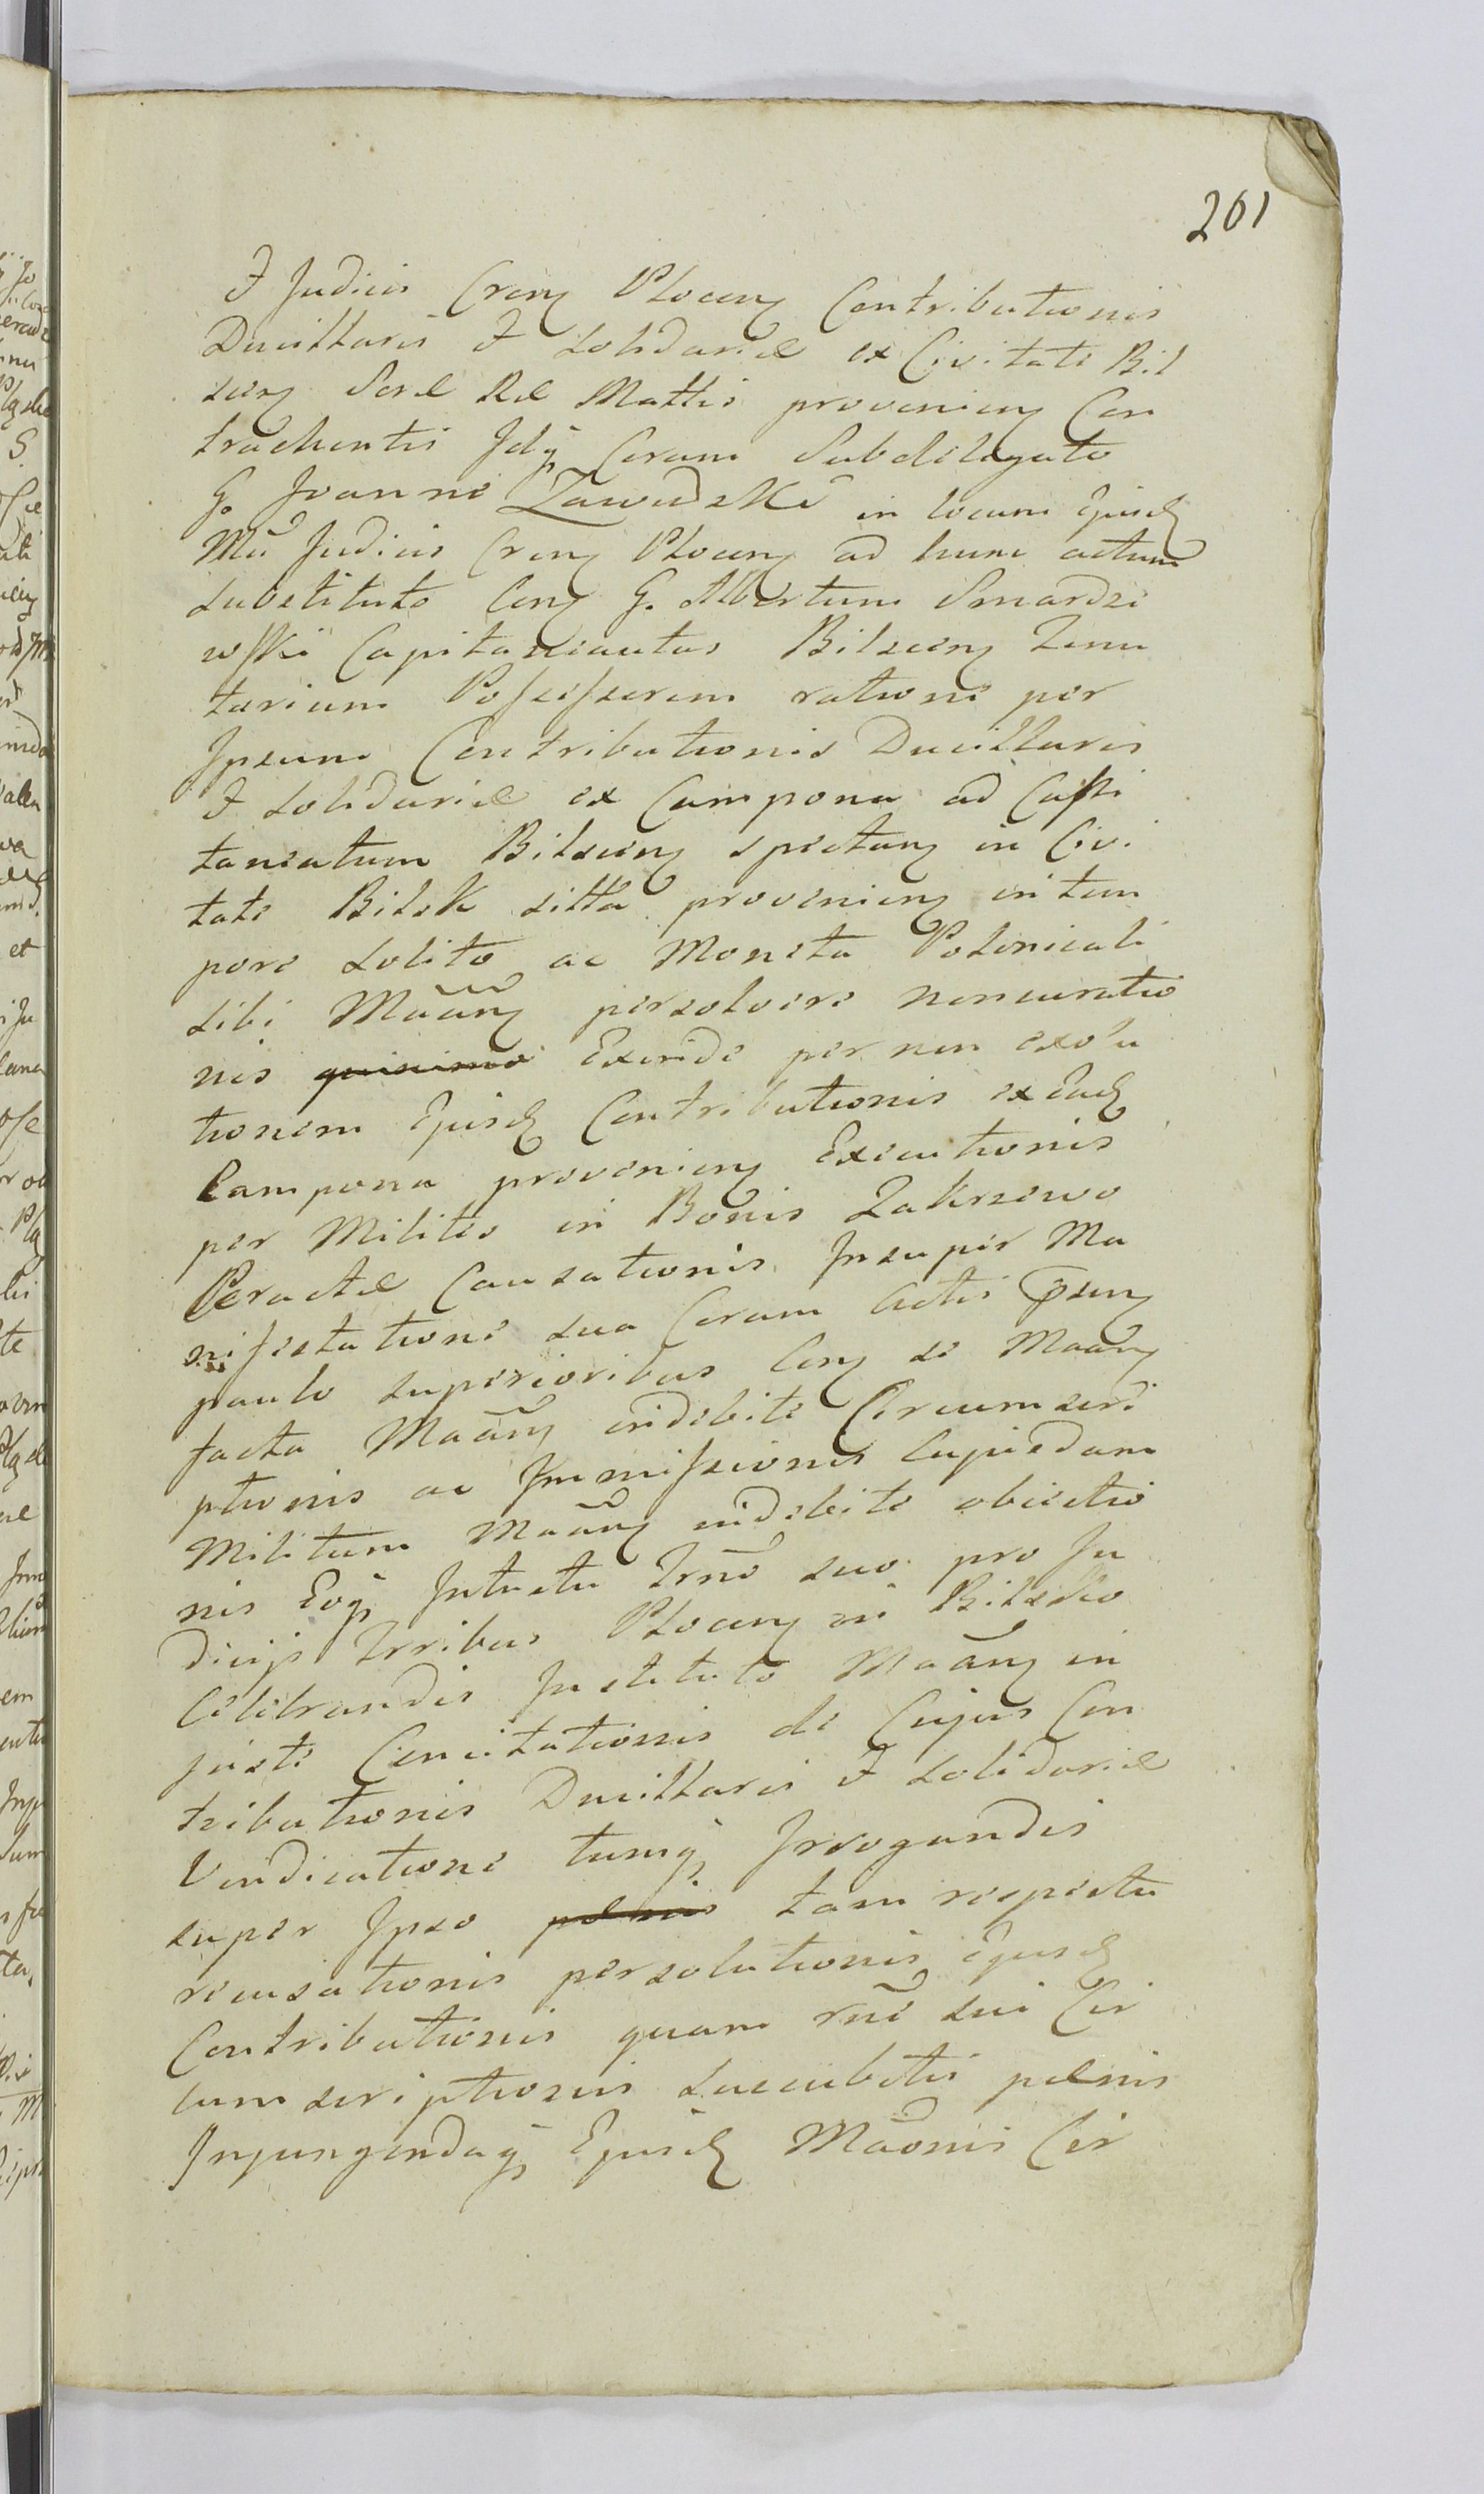 201
& Judicis Crens Plocens Contributionis
Ducillaris & Solidariæ ex Civitate Bil
scens Seræ Ræ Mattis proveniens Con
trachentis Idq Coram Subdelegato
G. Joanne Zawidzki in locum Ejusd
Mci Judicis Crens Plocens ad hunc actum
Substituto Cons G. Albertum Smardze
wski Capitaneautus Bilscens Tenu
tarium Possessorem ratione per
Ipsum Contributionis Ducillaris
& Solidariæ ex Campona ad Capi
taneatum Bilscens spectans in Civi
tate Bilsk sitta proveniens in tem
pore solito ac Moneta Polonicali
sibi Maãns persolvere noncuratio
nis quinimo Exinde per non exolu
tionem Ejusd Contributionis ex Ead
Campona proveniens Executionis
per Milites in Bonis Zakrzewo
Peractæ Causationis Insuper Ma
nifestatione sua Coram Actis Psens
paulo superioribus Cons se Maãns
facta Maãns indebite Circumscri
ptionis ac Immissionis Cupiedam
Militum Maãns indebite obiectio
nis Eoq Intuitu Trno suo pro Ju
dicijs Trribus Plocens in Bilsko
Celebrandis Instituto Maãns in
juste Concitationis de Cujus Con
tributionis Ducillaris & Solidariæ
Vendicatione tumq Irrogandis
super Ipso pænis tam respectu
recusationis persolutionis Ejusd
Contributionis quam rne sui Cir
cumscriptionis succubitis pænis
Injungendaq Ejusd Maonis Cir